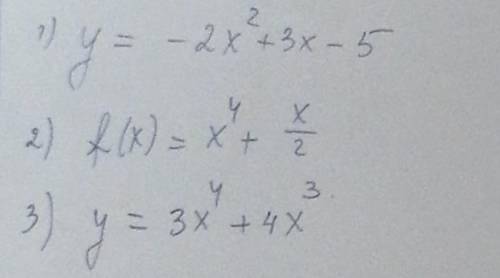 1) y = -2x² + 3x - 5
2) f(x) = x⁴ + x/2
3) y = 3x⁴ + 4x³